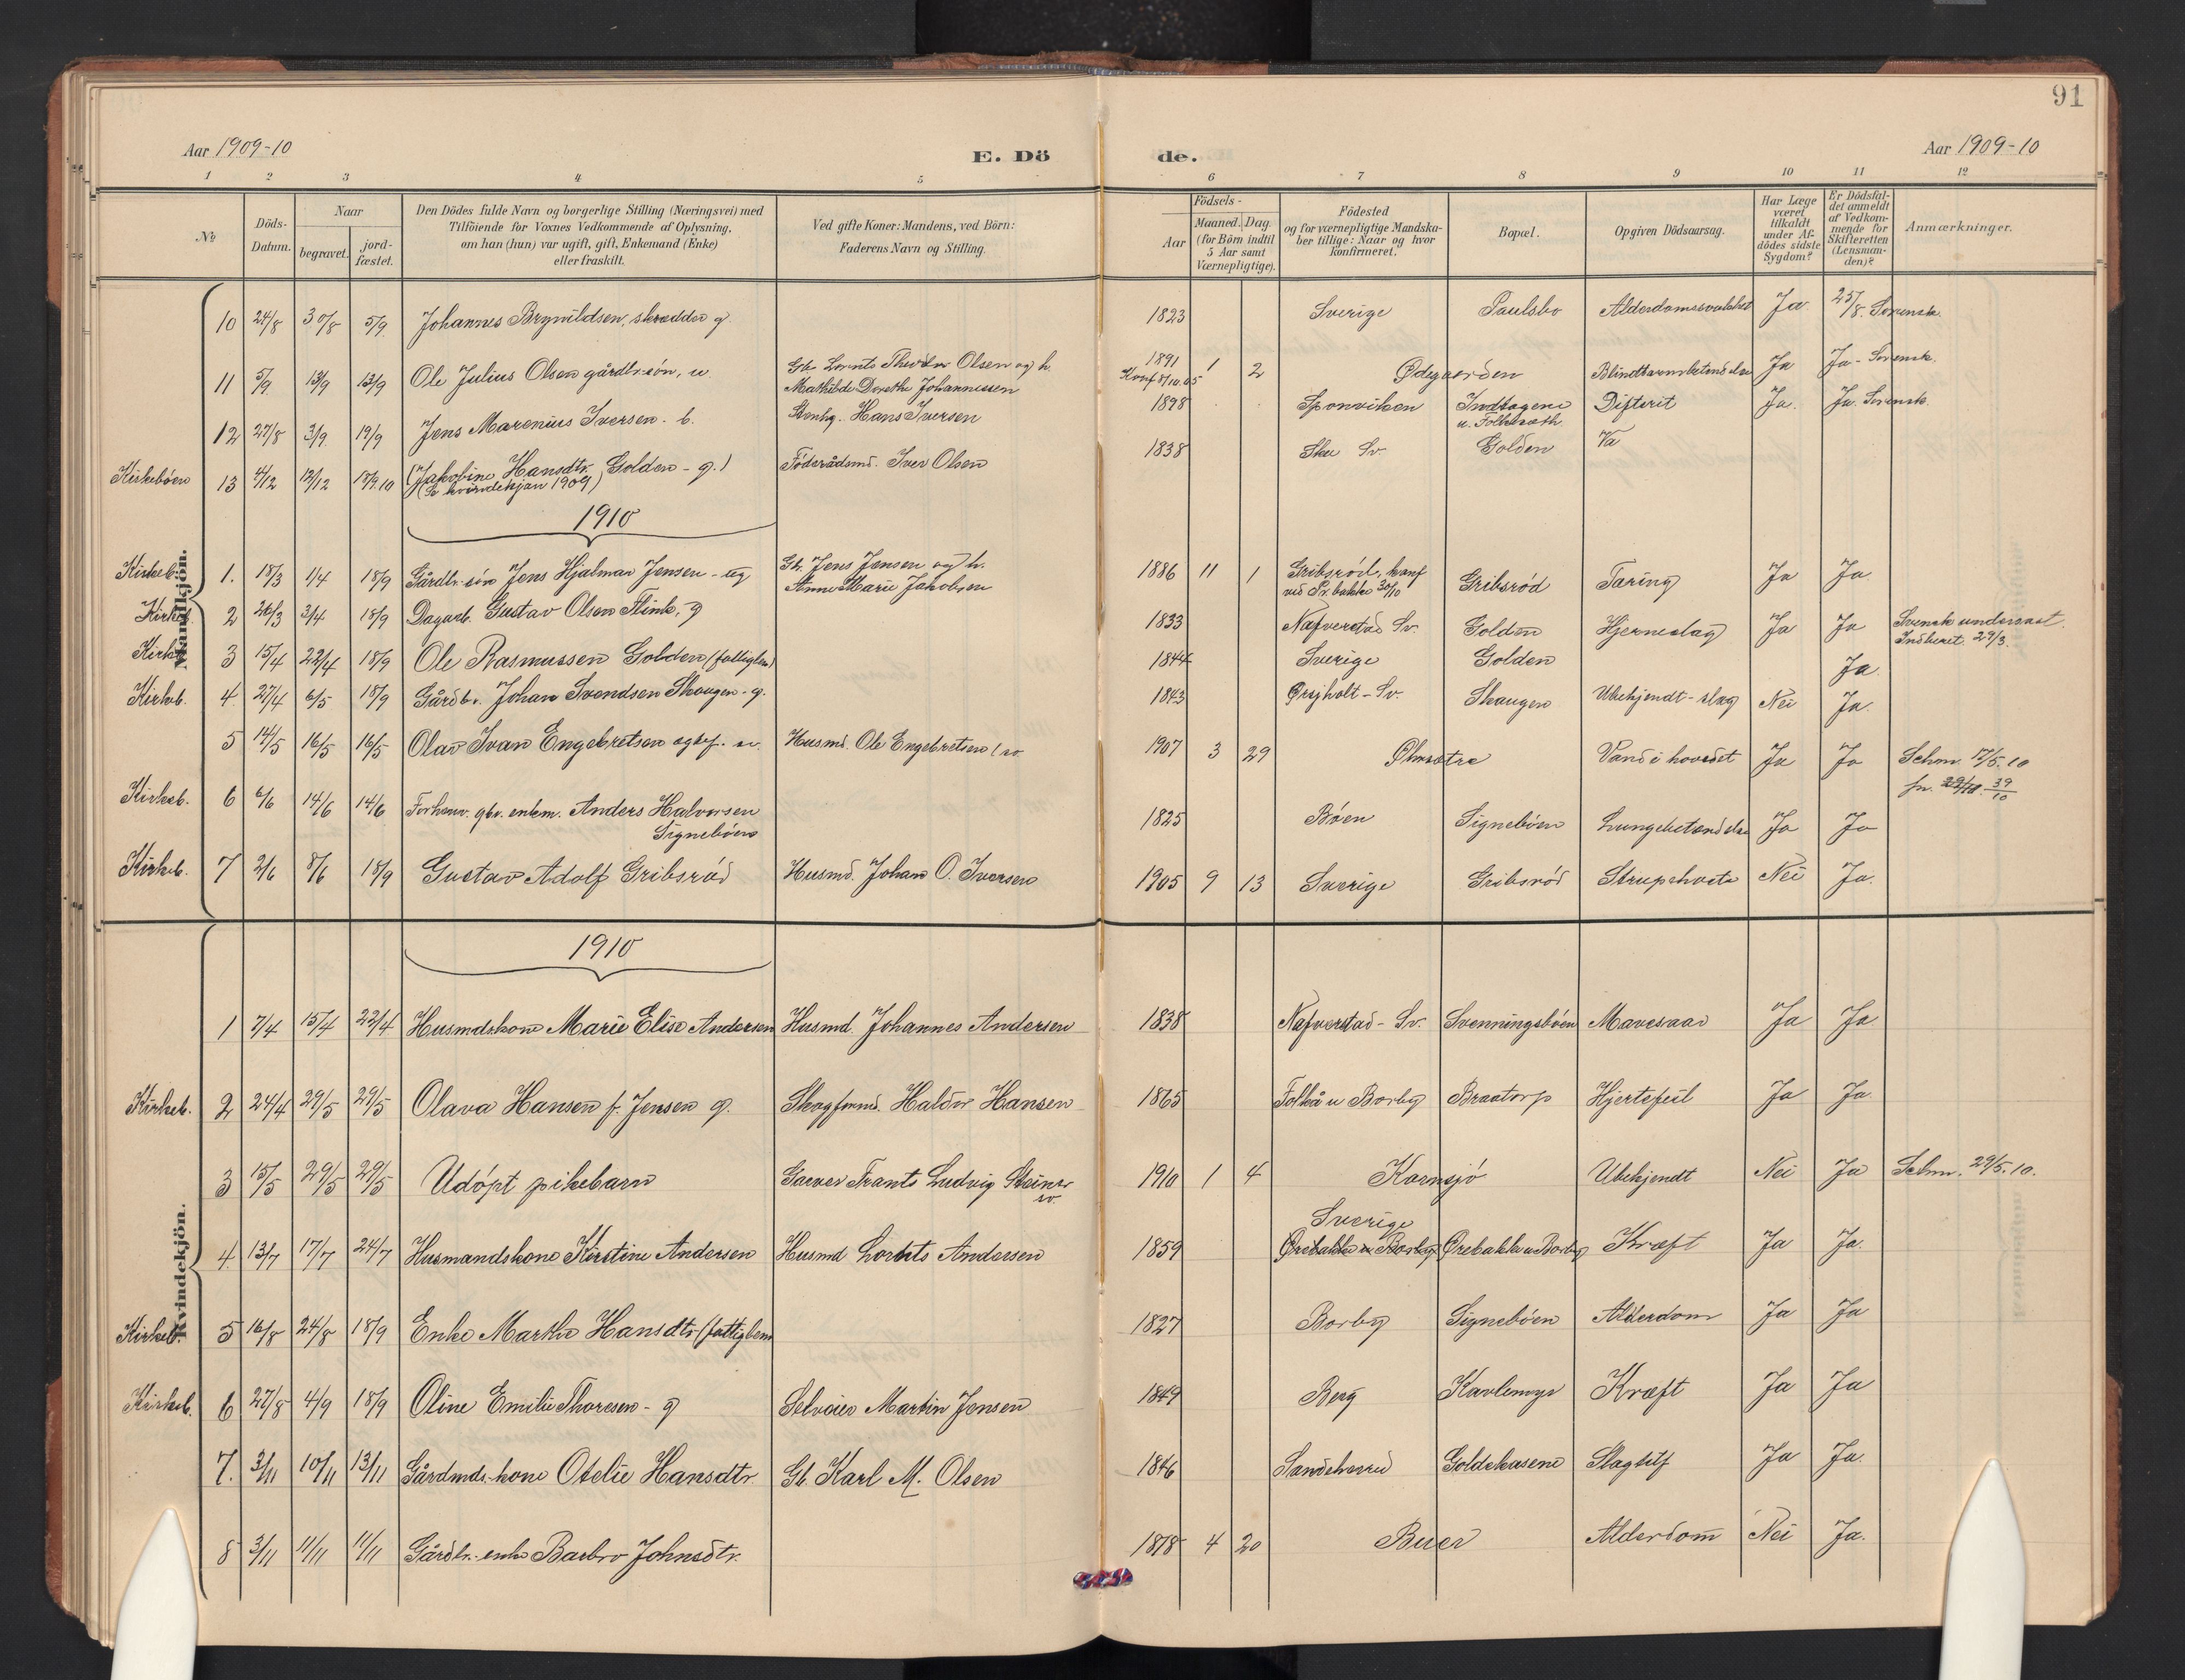 91
Aar 1909-10
E. Dö
de.
Aar 1909-10
1 2 3 4 5 6 7 8 9 10 11 12
No
Döds-Datum.
Naar
begravet.
jord-fæstet.
Den Dödes fulde Navn og borgerlige Stilling (Næringsvei) med
Tilföiende for Voxnes Vedkommende af Oplysning,
om han (hun) var ugift, gift, Enkemand (Enke)
eller fraskilt.
Ved gifte Koner: Mandens, ved Börn:
Faderens Navn og Stilling.
Födsels-
Aar
Maaned. Dag.
(for Börn indtil
5 Aar samt
Værnepligtige).
Födested
og for værnepligtige Mandska-
ber tillige: Naar og hvor
konfirmeret.
Bopæl.
Opgiven Dödsaarsag.
Har Læge
været
tilkaldt
under Af-
dödes sidste
Sygdom?
Er Dödsfal-
det anmeldt
af Vedkom-
mende for
Skifteretten
(Lensman-
den)?
Anmærkninger.
Mandkjön.
10 24/8 30/8 5/9. Johannes Brynildsen, skrædder g. 1823 Sverige Paulsbo Ja 25/8. Svensk.
11 5/9. 13/9 13/9 Ole Julius Olsen gårdbr.sön, u. Gb. Lorents Olsen og h.
Mathilde Dorethe Johannessen 1891 1 2
Konf 8/10.05 Ødegaarden Ja Ja - Svensk.
12 27/8 3/9. 19/9 Jens Marenius Iversen. b. Stenhg. Hans Iversen 1898 Sponviken Indtagene Difterit Ja. Ja. Svensk.
Kirkeböen 13 4/12 12/12 18/9.10 (Jakobine Hansdtr. Golden - g.) Föderådsmd. Iver Olsen 1838 Skee Sv. Golden
(Se kvindekjön 1909)
1910
Kirkeb. 1. 18/3 1/4 18/9 Gårdbr. sön Jens Hjalmar Jensen - ug Gb. Jens Jensen og h.
Anne Marie Jakobsen 1886 11 1 Gribsröd, konf Gribsröd Tæring Ja Ja.
Kirkeb. 2 26/3 3/4 18/9 Dagarb. Gustav Olsen Flink, g 1833 Nafverstad Sv. Golden Hjerneslag Ja Ja Svensk undersaat.
Indberet. 29/3.
Kirkeb. 3 15/4 22/4 18/9 Ole Rasmussen Golden (fattiglem) 1844 Sverige Golden Ja.
Kirkeb. 4. 27/4 6/5 18/9 Gårdbr. Johan Svendsen Skaugen - g. 1843 Skaugen Ubekjendt - slag Nei Ja.
5 14/5 16/5 16/5 Olav Ivan Engebretsen Husmd. Ole Engebretsen 1907 3 29 Ølmsætre Vand i hovedet Ja Ja Schm. 17/5.10
Kirkeb. 6 6/6 14/6 14/6 Forhenv. gbr. enkem. Anders Halvorsen
Signebøen 1825 Böen Signeböen Lungebetændelse Ja Ja
Kirkeb. 7 2/6 8/6 18/9 Gustav Adolf Gribsröd Husmd. Johan O. Iversen 1905 9 13 Sverige Gribsröd Strupehoste Nei Ja.
Kvindekjön.
1910
1 7/4 15/4 22/4 Husmdskone Marie Elise Andersen Husmd. Johannes Andersen 1838 Nafverstad - Sv. Svenningsböen Mavesaar Ja Ja
Kirkeb. 2 24/4 29/5 29/5 Olava Hansen f. Jensen g. Skogfmnd. Haldor Hansen 1865 Folkå u Borby Braatorp Hjertefeil Ja Ja.
3 15/5 29/5 29/5 Udöpt pikebarn Garver Frants Ludvig Steiner
sv. 1910 1 4 Kornsjö Ubekjendt Nei Ja Schm. 29/5.10.
4. 13/7 17/7 24/7 Husmandskone Kirstine Andersen Husmd Lorents Andersen 1859 Sverige
Ørebakke u Borby Ørebakke u Borby Kræft Ja Ja.
Kirkeb. 5 16/8 24/8 18/9 Enke Marthe Hansdtr (fattiglem 1827 Borby Signeböen Alderdom Ja Ja
Kirkeb. 6 27/8 4/9 18/9 Oline Emilie Thoresen - g Selveier Martin Jensen 1849 Berg Kavlemyr Kræft Ja Ja
7. 3/11 10/11 13/11 Gårdmds. kone Otelie Hansdtr. Gb. Karl M. Olsen 1846 Goldekasene Slagtilf Ja Ja.
8 3/11 11/11 11/11 Gårdbr. enke Barbro Johnsdtr. 1818 4 20 Buer Alderdom Nei Ja.